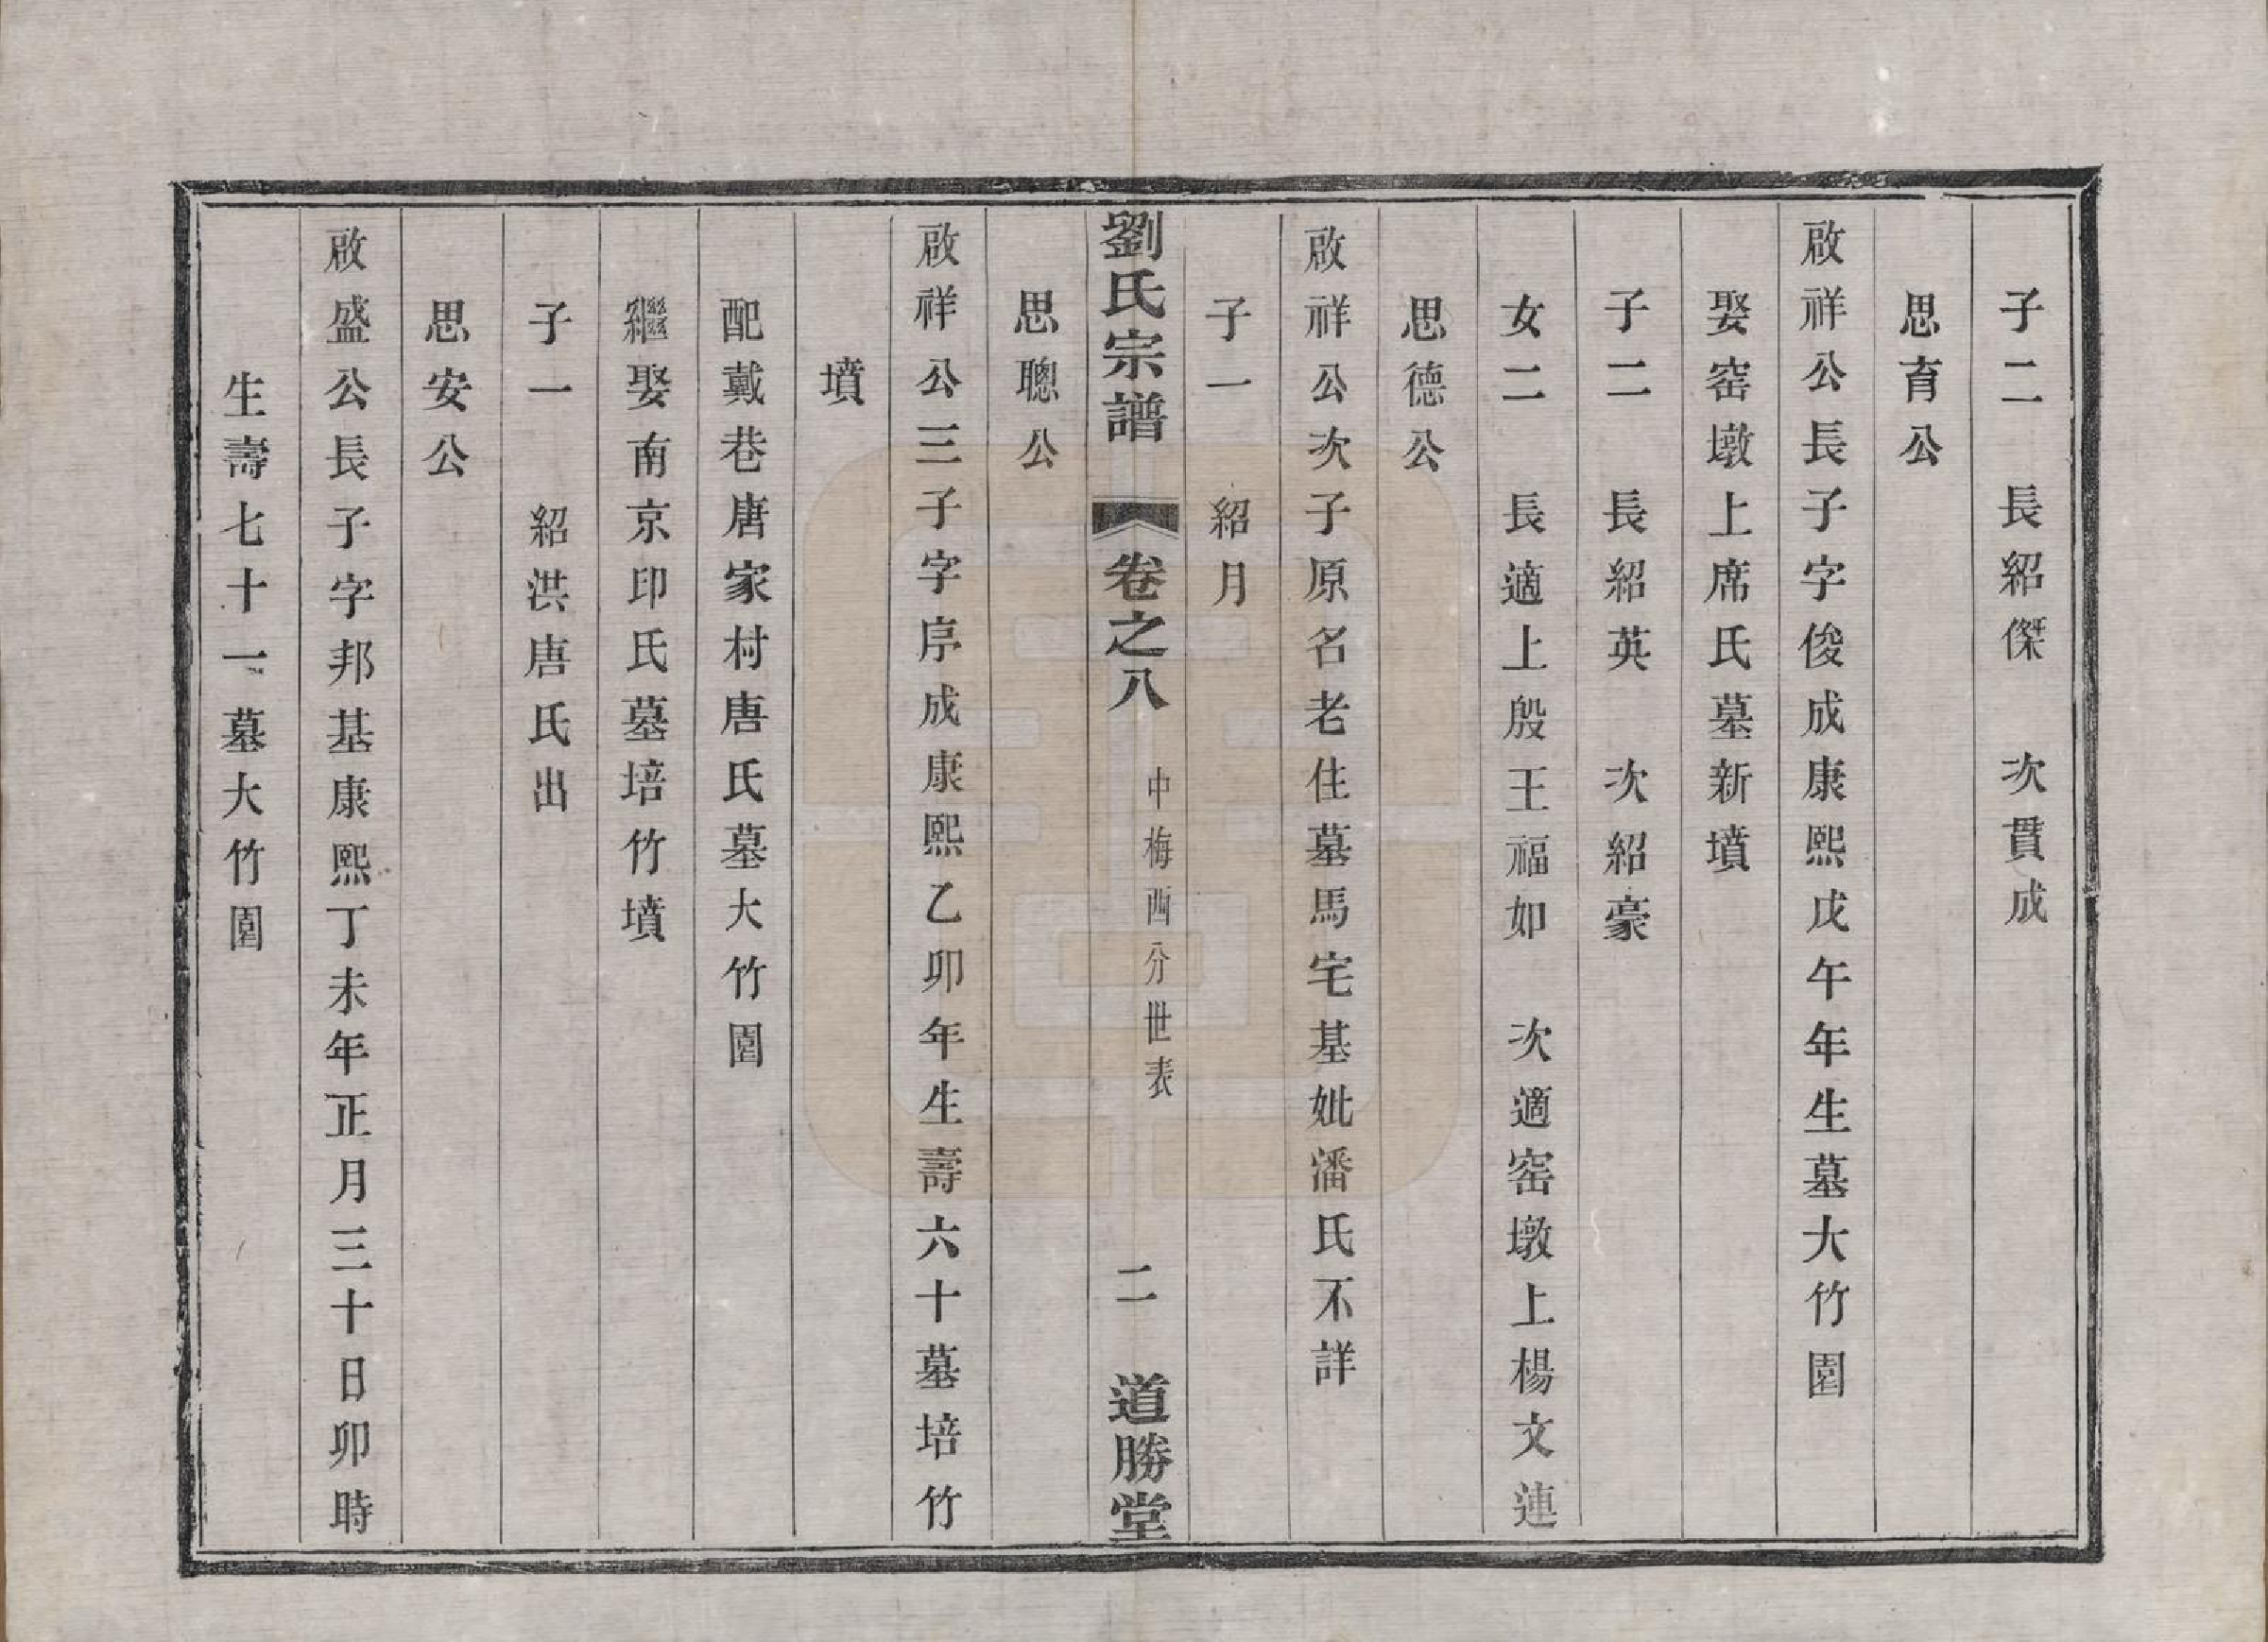 子二　長紹傑　次貫成
思育公
啟祥公長子字俊成康熙戊午年生墓大竹園
娶窑墩上席氏墓新墳
子二　長紹英　次紹豪
女二　長適上殷王福如　次適窑墩上楊文連
思德公
啟祥公次子原名老住墓馬宅基妣潘氏不詳
子一　紹月
劉氏宗譜　卷之八　中梅西分世表　二　道勝堂
思聰公
啟祥公三子字序成康熙乙卯年生壽六十墓培竹
墳
配戴巷唐家村唐氏墓大竹園
繼娶南京印氏墓培竹墳
子一　紹洪唐氏出
思安公
啟盛公長子字邦基康熙丁未年正月三十日卯時
生壽七十一墓大竹園